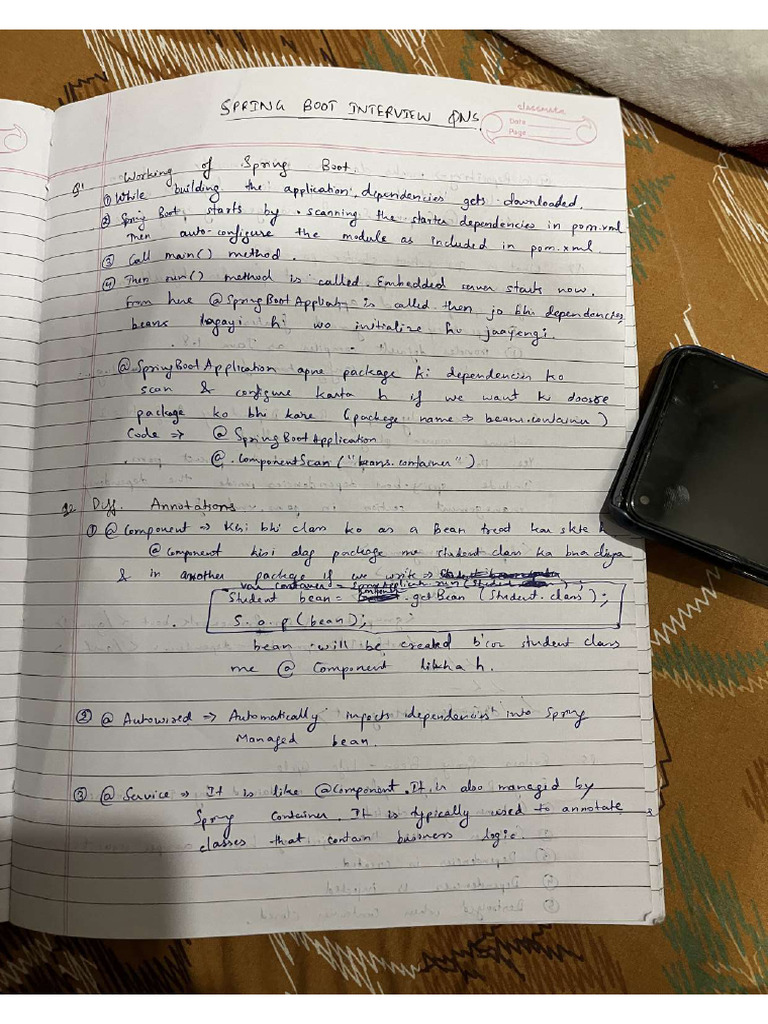 SPRING BOOT INTERVIEW QNS.
classmate
Date
Page
Q1 Working of Spring Boot.
① While building the application, dependencies gets downloaded.
② Spring Boot, starts by scanning the starter dependencies in pom.xml
Then auto-configure the module as included in pom.xml
③ Call main() method.
④ Then run() method is called. Embedded server starts now.
From here @SpringBootApplication is called then jo bhi dependencies,
beans lagayi hi wo initialize ho jaayengi.
@SpringBootApplication apne package ki dependencies ko
scan & configure karta h if we want ki doosre
package ko bhi kare (package name => beans.container)
Code => @SpringBootApplication
@.ComponentScan ("beans.container")
Q2 Diff. Annotations.
① @Component => Kisi bhi class ko as a Bean treat kar skte h
@Component kisi alag package me student class ka bna diya
& in another package if we write =>
var container = SpringApplication.run (Student );
Student bean = .getBean (Student.class);
S.o.p (bean);
bean will be created b'coz student class
me @ Component likha h.
② @ Autowired => Automatically injects dependencies into Spring
Managed bean.
③ @ Service => It is like @Component. It is also managed by
Spring container. It is typically used to annotate
classes that contain business logic.